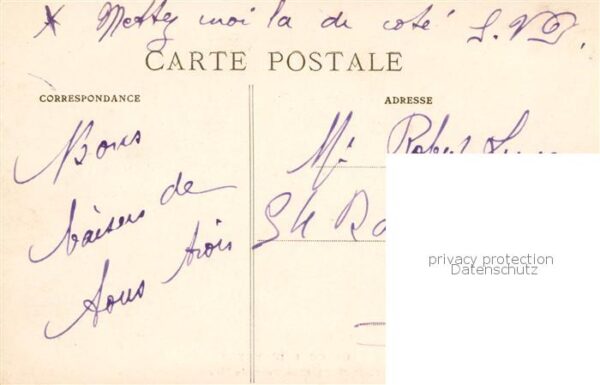 * Mettez moi la de coté S.V.P.
CARTE POSTALE
CORRESPONDANCE
ADRESSE
Bons
baisers de
tous trois
Mr Robert
34 
privacy protection
Datenschutz